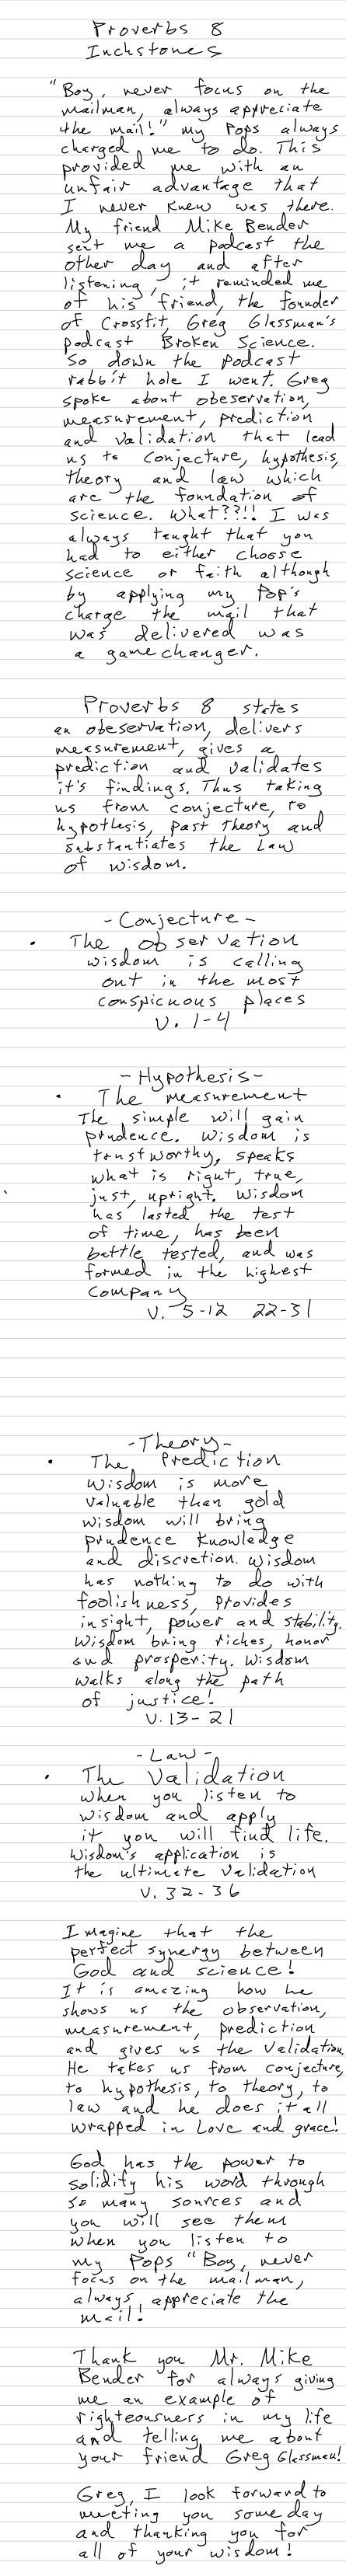 Proverbs 8
Inchstones
"Boy, never focus on the
mailman, always appreciate
the mail!" my Pops always
charged me to do. This
provided me with an
unfair advantage that
I never knew was there.
My friend Mike Bender
sent me a podcast the
other day and after
listening, it reminded me
of his friend, the founder
of Crossfit, Greg Glassman's
podcast Broken Science.
So down the podcast
rabbit hole I went. Greg
spoke about obeservation,
measurement, prediction
and validation that lead
us to conjecture, hypothesis,
theory and law which
are the foundation of
science. What??!! I was
always taught that you
had to either choose
science or faith although
by applying my Pop's
charge the mail that
was delivered was
a gamechanger.
Proverbs 8 states
an obeservation, delivers
measurement, gives a
prediction and validates
it's findings. Thus taking
us from conjecture, to
hypothesis, past theory and
substantiates the Law
of wisdom.
- Conjecture -
• The observation
wisdom is calling
out in the most
conspicuous places
V. 1-4
- Hypothesis -
• The measurement
The simple will gain
prudence. Wisdom is
trustworthy, speaks
what is right, true,
just, upright. Wisdom
has lasted the test
of time, has been
battle tested, and was
formed in the highest
company
V. 5-12 22-31
- Theory -
• The Prediction
Wisdom is more
valuable than gold
wisdom will bring
prudence knowledge
and discretion. Wisdom
has nothing to do with
foolishness, provides
insight, power and stability.
Wisdom bring riches, honor
and prosperity. Wisdom
walks along the path
of justice!
V. 13-21
- Law -
• The Validation
when you listen to
wisdom and apply
it you will find life.
Wisdom's application is
the ultimate validation
V. 32-36
Imagine that the
perfect synergy between
God and science!
It is amazing how he
shows us the observation,
measurement, prediction
and gives us the Validation.
He takes us from conjecture,
to hypothesis, to theory, to
law and he does it all
wrapped in Love and grace!
God has the power to
solidify his word through
so many sources and
you will see them
when you listen to
my Pops "Boy, never
focus on the mailman,
always appreciate the
mail!
Thank you Mr. Mike
Bender for always giving
me an example of
righteousness in my life
and telling me about
your friend Greg Glassman!
Greg, I look forward to
meeting you some day
and thanking you for
all of your wisdom!